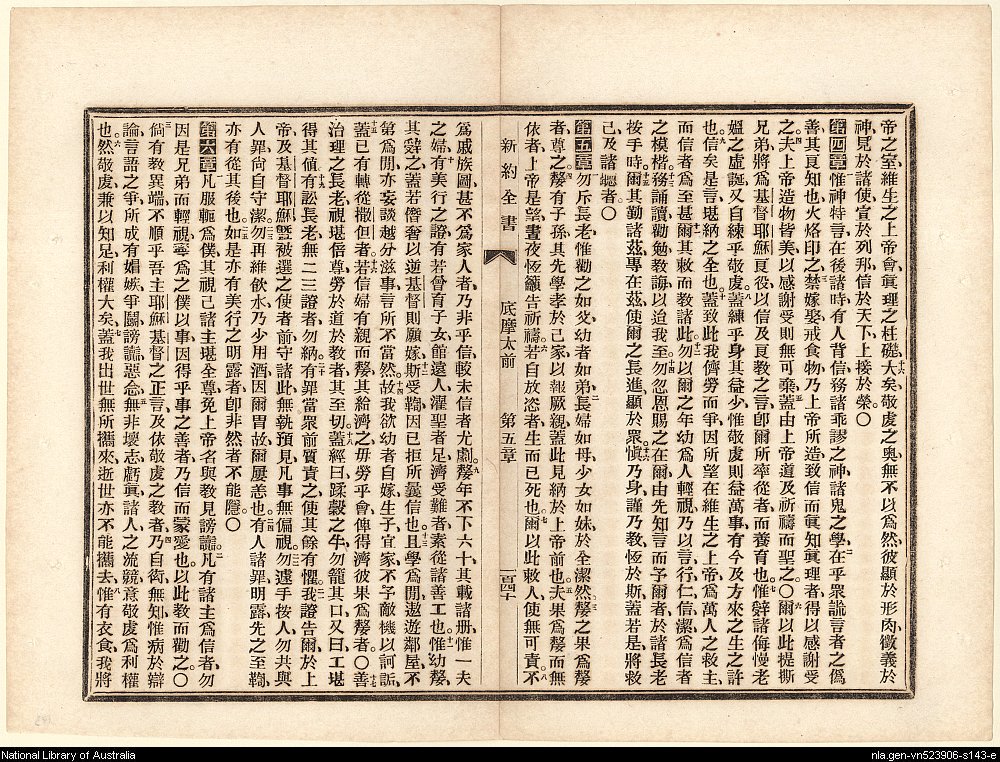 帝之室維生之上帝會眞理之柱礎大矣敬虔之奧無不以爲然彼顯於形肉徵義於
神見於諸使宣於列邦信於天下上接於榮〇
第四章惟神特言在後諸時有人背信務諸乖謬之神諸鬼之學在乎眾詭言者之僞
善其良知也火烙印之禁嫁娶戒食物乃上帝所造致信而眞知眞理者得以感謝受
之夫上帝造物皆美以感謝受則無可棄蓋由上帝道及祈禱而聖之〇爾以此提撕
兄弟將爲基督耶穌良役以信及良教之言卽爾所率從者而養育也惟辟諸侮慢老
嫗之虛誕又自練乎敬虔蓋練乎身其益少惟敬虔則益萬事有今及方來之生之許
也信矣是言堪納之全也蓋致此我儕勞而爭因所望在維生之上帝爲萬人之救主
而信者爲至甚爾其敕而教諸此勿以爾之年幼爲人輕視乃以言行仁信潔爲信者
之模楷務誦讀勸勉教誨以迨我至勿忽恩賜之在爾由先知言而予爾者於諸長老
按手時爾其勤諸茲專在茲使爾之長進顯於眾愼乃身謹乃教恆於斯蓋若是將救
己及諸聽者〇
第五章勿斥長老惟勸之如父幼者如弟長婦如母少女如妹於全潔然嫠之果爲嫠
者尊之嫠有子孫其先學孝於己家以報厥親蓋此見納於上帝前也夫果爲嫠而無
依者上帝是望晝夜恆籲告祈禱若自放恣者生而已死也爾以此敕人使無可責不
新約全書 底摩太前 第五章 一百四十
爲戚族圖甚不爲家人者乃非乎信較未信者尤劇嫠年不下六十其載諸册惟一夫
之婦有美行之證有若曾育子女館遠人濯聖者足濟受難者素從諸善工也惟幼嫠
其辭之蓋若僭奢以逆基督則願嫁斯受鞫因已拒所曩信也且學爲閒遨遊鄰屋不
第爲閒亦妄談越分滋事言所不當然故我欲幼者自嫁生子宜家不予敵機以訶詬
蓋已有轉從撒但者若信婦有親而嫠其給濟之毋勞乎會俾得濟彼果爲嫠者〇善
治理之長老視堪倍尊勞於道於教者其至切蓋經曰蹂穀之牛勿籠其口又曰工堪
得其値有訟長老無二三證者勿納有罪當眾前質責之使其餘有懼我證告爾於上
帝及基督耶穌曁被選之使者前守諸此無執預見凡事無偏視勿遽手按人勿共與
人罪尚自守潔勿再維飲水乃少用酒因爾胃故爾屢恙也有人諸罪明露先之至鞫
亦有從其後也如是亦有美行之明露者卽非然者不能隱〇
第六章凡服軛爲僕其視己諸主堪全尊免上帝名與教見謗讟凡有諸主爲信者勿
因是兄弟而輕視寧爲之僕以事因得乎事之善者乃信而蒙愛也以此教而勸之〇
倘有教異端不順乎吾主耶穌基督之正言及依敬虔之教者乃自衒無知惟病於辯
論言語之爭所成有媢嫉爭鬬謗讟惡念無非壞志虧眞諸人之流競意敬虔爲利權
也然敬虔兼以知足利權大矣蓋我出世無所攜來逝世亦不能攜去惟有衣食我將
National Library of Australia
nla.gen-vn523906-s143-e